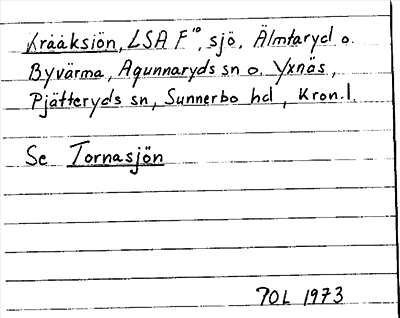 Krååksiön, LSA F¹⁰, sjö, Älmtaryd o.
Byvärma, Agunnaryds sn o. Yxnäs,
Pjätteryds sn, Sunnerbo hd, Kron. l.
Se Tornasjön
70L 1973